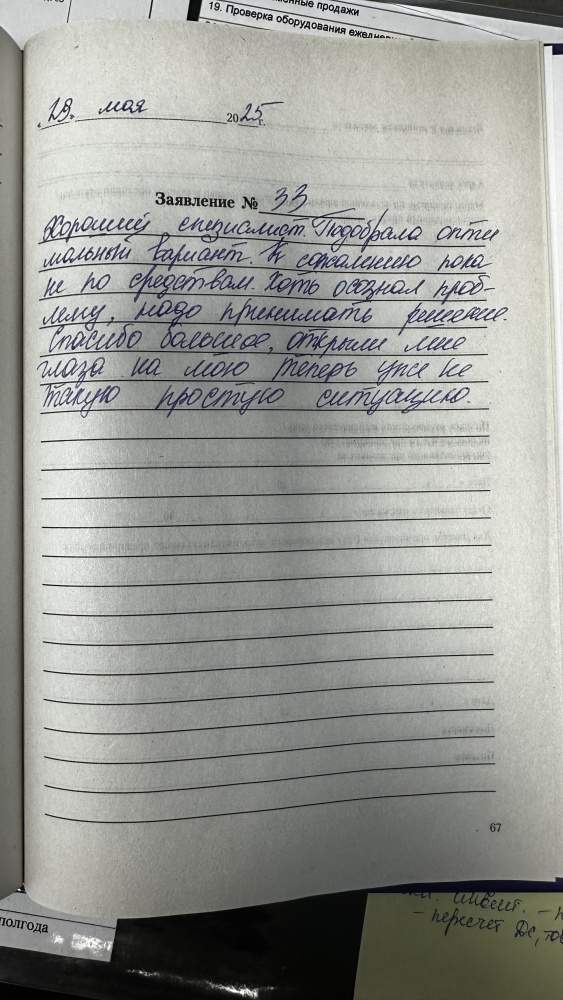 нные продажи
19. Проверка оборудования ежедневн
«29» мая 2025 г.
Заявление № 33
Хороший специалист. Подобрала опти
мальный вариант. К сожалению пока
не по средствам. Хоть осознал проб-
лему, надо принимать решение.
Спасибо большое, открыли мне
глаза на мою теперь уже не
такую простую ситуацию.
67
полгода
- пересчет ДС, тов